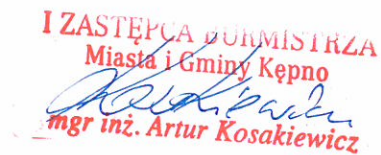 I ZASTĘPCA BURMISTRZA
Miasta i Gminy Kępno
mgr inż. Artur Kosakiewicz